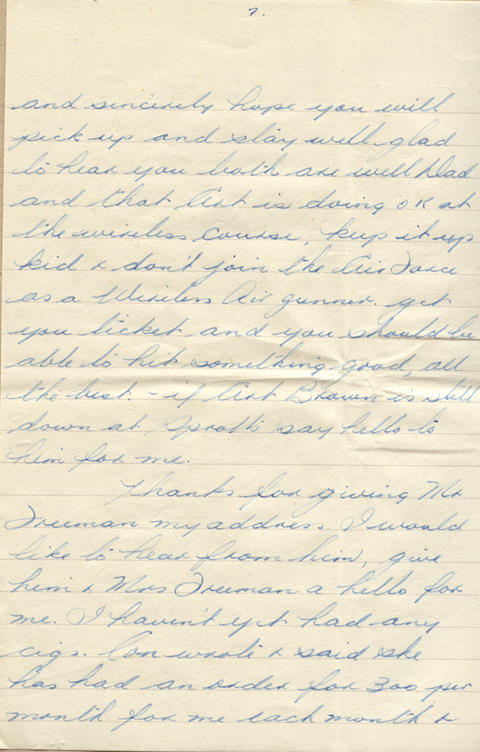 7.
and sincerely hope you will
pick up and stay well. glad
to hear you both are well Dad
and that Art is doing OK at
the wireless course, keep it up
kid & don't join the Air Force
as a Wireless Air gunner. get
you ticket and you should be
able to hit something good, all
the best. - if Art Brown is still
down at Spratts say hello to
him for me.
Thanks for giving Mr
Truman my address I would
like to hear from him, give
him & Mrs Truman a hello for
me. I haven't yet had any
cigs. Con wrote & said she
has had an order for 300 per
month for me each month &